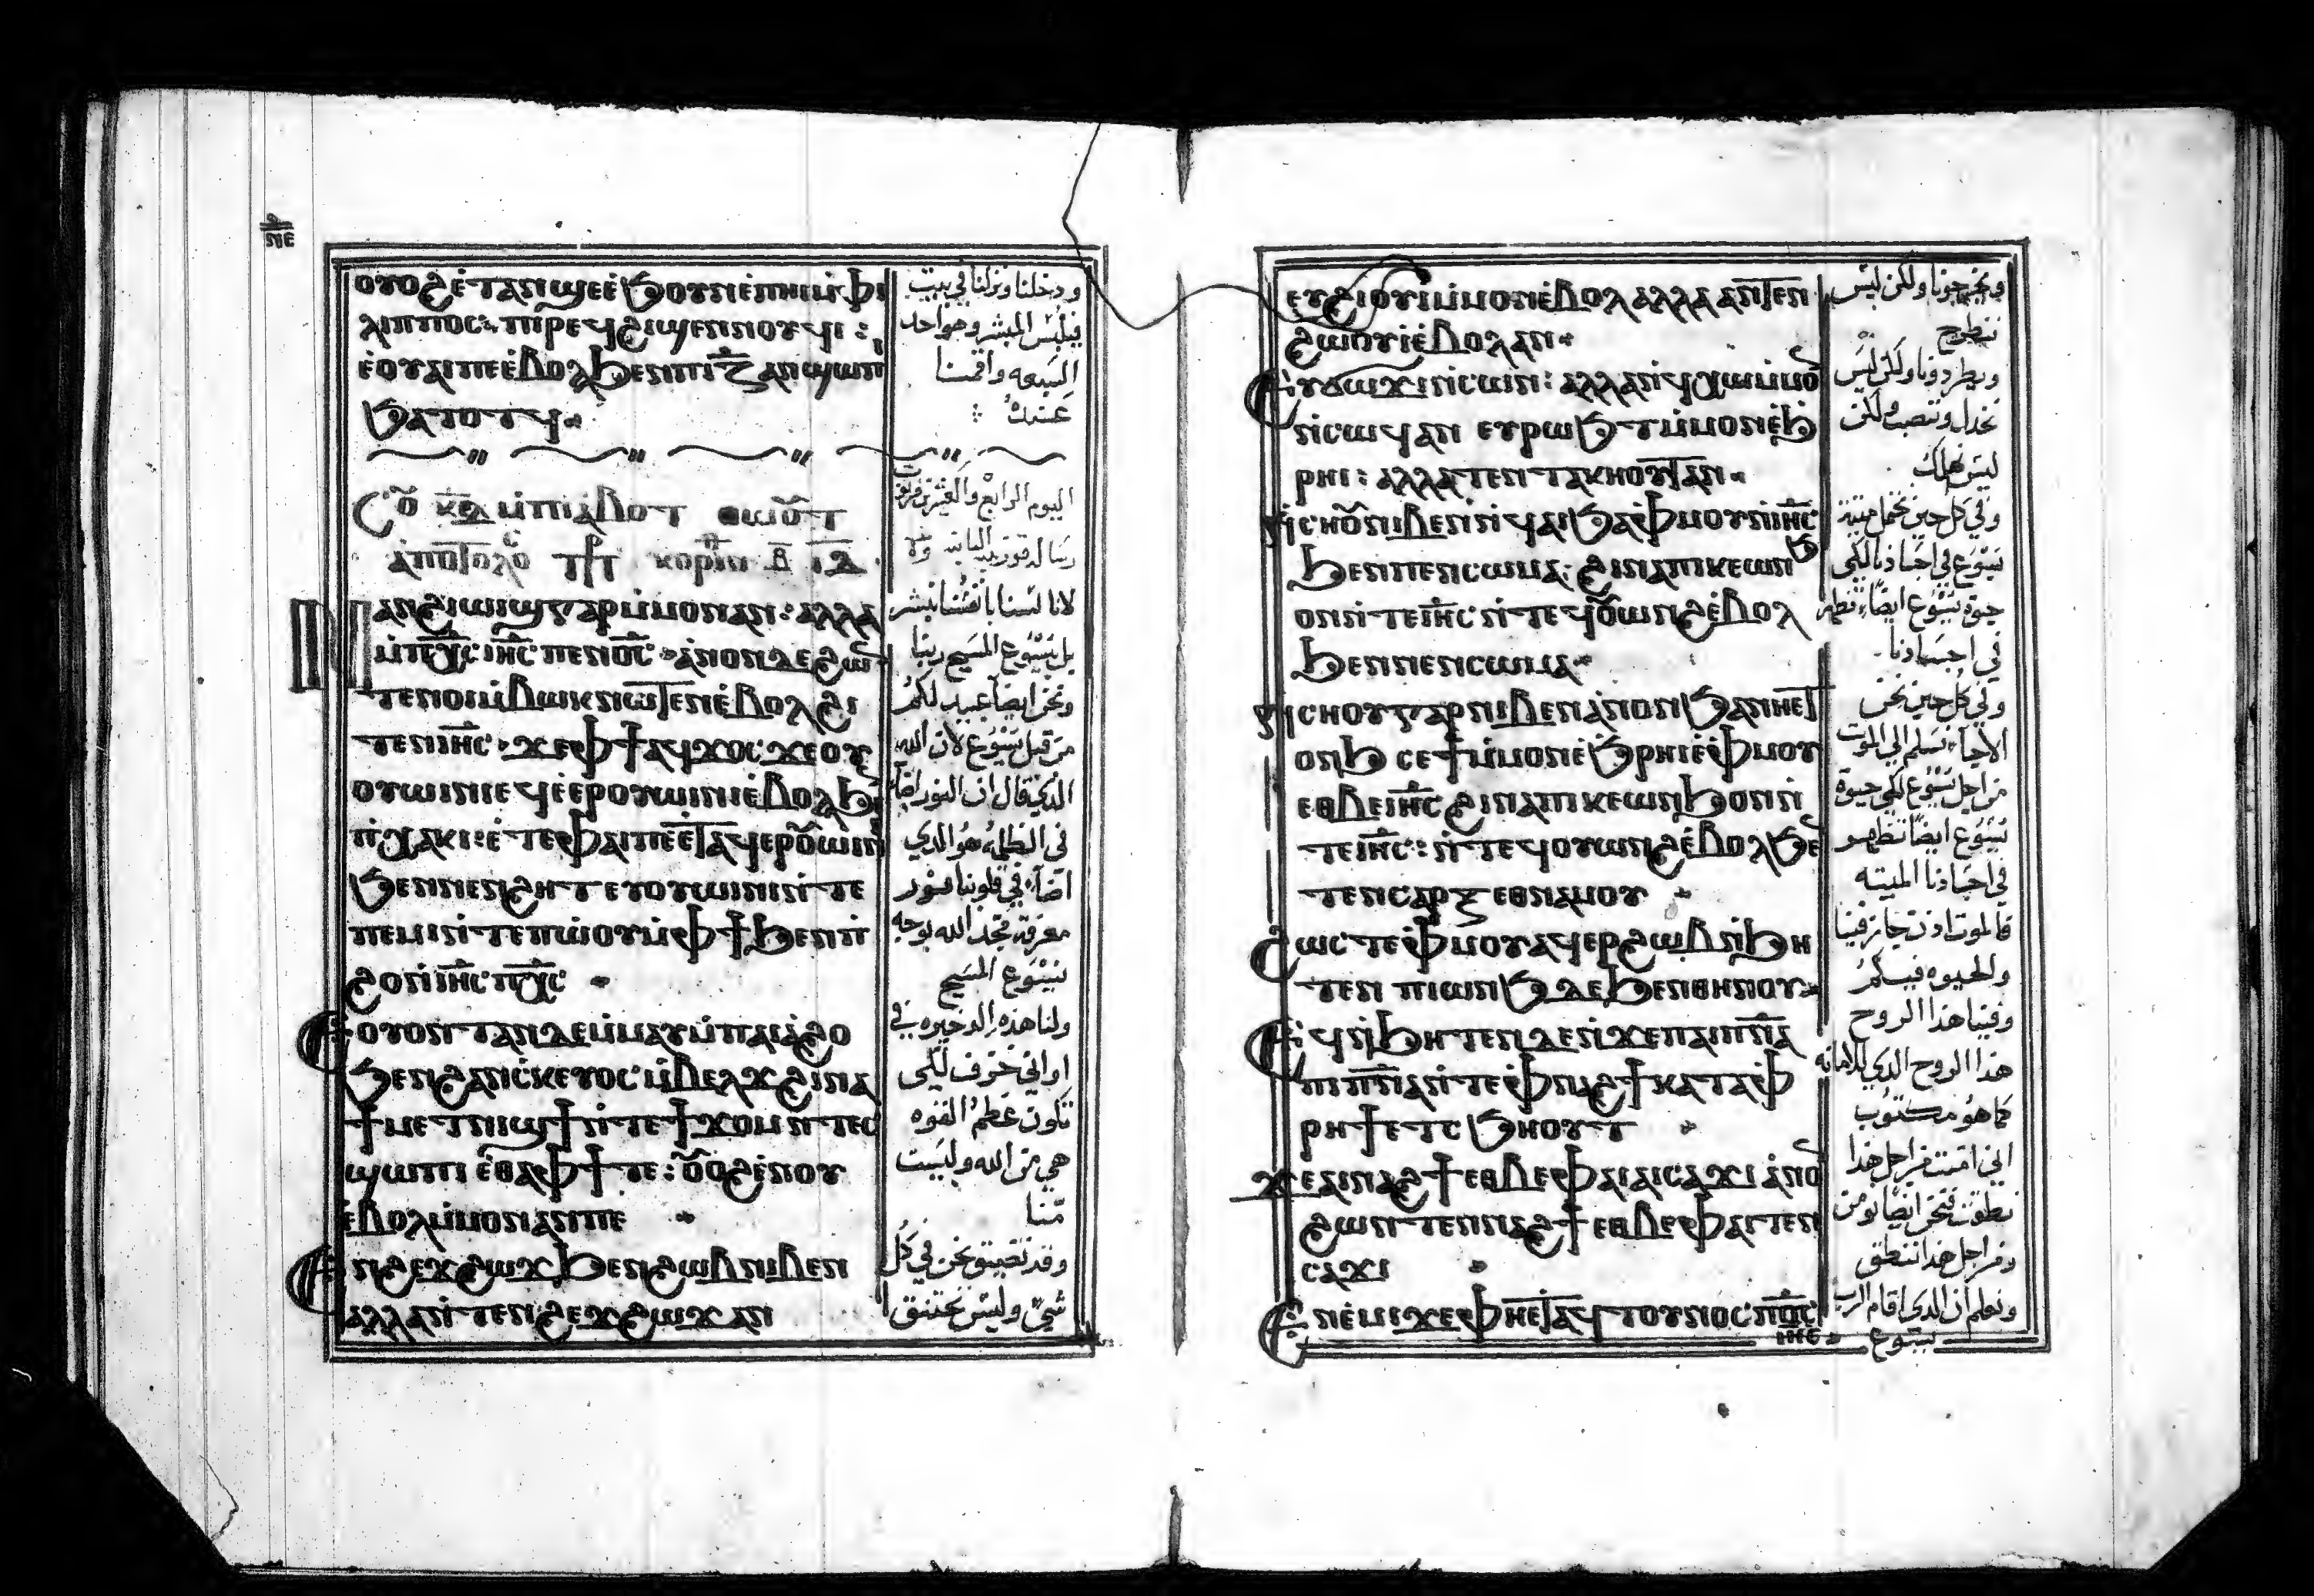 ⲛⲉ
ⲟⲩⲟϩ ⲉ̀ⲧⲁⲛϣⲉ ⲉ̀ϧⲟⲩⲛ ⲉ̀ⲡⲏⲓ ⲙ̀ⲫⲓ
ⲗⲓⲡⲡⲟⲥ: ⲡⲓⲣⲉϥϩⲓϣⲉⲛⲛⲟⲩϥⲓ:
ⲉ̀ⲟⲩⲁⲓ ⲡⲉ ⲉ̀ⲃⲟⲗ ϧⲉⲛ ⲡⲓⲍ̅ ⲁⲛϣⲱⲡ
ϧⲁⲧⲟⲧϥ
ⲥⲟⲩ ⲕ̅ⲇ̅ ⲙ̀ⲡⲓⲁ̀ⲃⲟⲧ ⲑⲱⲟⲩⲧ
ⲁ̀ⲡⲟⲥⲧⲟⲗⲟ ⲕⲟⲣⲓⲛ ⲃ̅ ⲓ̅ⲇ̅
ⲛⲁⲛϩⲓⲱⲓϣ ⲅⲁⲣ ⲙ̀ⲙⲟⲛ ⲁⲛ: ⲁⲗⲗⲁ
ⲙ̀ⲡⲭ̅ⲥ̅ ⲓⲏ̅ⲥ̅ ⲡⲉⲛⲟ̅ⲥ̅ ⲁ̀ⲛⲟⲛ ⲇⲉ ϩⲱⲛ
ⲧⲉⲛⲟⲓ ⲙ̀ⲃⲱⲕ ⲛⲱⲧⲉⲛ ⲉ̀ⲃⲟⲗ ϩⲓ
ⲧⲉⲛ ⲓⲏ̅ⲥ̅ ϫⲉ ⲫϯ ⲁϥϫⲟⲥ ϫⲉ ⲟⲩ
ⲟⲩⲱⲓⲛⲓ ⲉϥⲉ̀ⲉⲣⲟⲩⲱⲓⲛⲓ ⲉ̀ⲃⲟⲗ ϧⲉⲛ
ⲡ̀ⲭⲁⲕⲓ: ⲉ̀ⲧⲉ ⲫⲁⲓ ⲡⲉ ⲉ̀ⲧⲁϥⲉⲣⲟⲩⲱⲓⲛⲓ
ϧⲉⲛ ⲛⲉⲛϩⲏⲧ ⲉⲩⲟⲩⲱⲓⲛⲓ ⲛ̀ⲧⲉ
ⲡⲉⲙⲓ ⲛ̀ⲧⲉ ⲡⲱ̀ⲟⲩ ⲙ̀ⲫϯ ϧⲉⲛ ⲡ̀
ϩⲟ ⲛ̀ⲓⲏ̅ⲥ̅ ⲡⲭ̅ⲥ̅
ⲉⲟⲩⲟⲛⲧⲁⲛ ⲇⲉ ⲙ̀ⲙⲁⲩ ⲙ̀ⲡⲁⲓⲁ̀ϩⲟ
ϧⲉⲛ ϩⲁⲛⲥ̀ⲕⲉⲩⲟⲥ ⲙ̀ⲃⲉⲗϫ ϩⲓⲛⲁ
ϯⲙⲉⲧⲛⲓϣϯ ⲛ̀ⲧⲉ ϯϫⲟⲙ ⲛ̀ⲧⲉⲥ
ϣⲱⲡⲓ ⲉ̀ⲑⲁ ⲫϯ ⲧⲉ: ⲟⲩⲟϩ ⲉ̀ⲛⲟⲩ
ⲉ̀ⲃⲟⲗ ⲙ̀ⲙⲟⲛ ⲁⲛ ⲡⲉ
ⲉⲛϩⲉϫϩⲱϫ ϧⲉⲛ ϩⲱⲃ ⲛⲓⲃⲉⲛ
ⲁⲗⲗⲁ ⲛ̀ⲧⲉⲛϩⲉϫϩⲱϫ ⲁⲛ
ودخلنا ونزلنا في بيت
فيلبس المبشر وهو احد
السبعه واقمنا
عنده
اليوم الرابع والعشرين من توت
لاننا لسنا بانفسنا نبشر
بل بيسوع المسيح ربنا
ونحن ايضا عبيد لكم
من قبل يسوع لان الله
الذي قال ان النور اضا
في الظلمه هو الدي
اضآء في قلوبنا بنور
معرفة مجد الله بوجه
يسوع المسيح
ولنا هذه الدخيره في
اواني خزف لكي
تكون عظم القوه
هي من الله وليست
منا
وقد نضيق نحن في كل
شي وليس نختنق
ⲉⲩϩⲓⲟⲩⲓ ⲙ̀ⲙⲟⲛ ⲉ̀ⲃⲟⲗ ⲁⲗⲗⲁ ⲁⲛⲧⲉⲛ
ϩⲱⲟⲩⲓ ⲉ̀ⲃⲟⲗ ⲁⲛ
ⲉⲩϭⲟϫⲓ ⲛ̀ⲥⲱⲛ: ⲁⲗⲗⲁ ⲛ̀ϥⲭⲱ ⲙ̀ⲙⲟ
ⲛ̀ⲥⲱϥ ⲁⲛ ⲉⲩⲣⲱϧⲧ ⲙ̀ⲙⲟⲛ ⲉ̀ϧ
ⲣⲏⲓ: ⲁⲗⲗⲁ ⲧⲉⲛⲧⲁⲕⲏⲟⲩⲧ ⲁⲛ
ⲛ̀ⲥⲏⲟⲩ ⲛⲓⲃⲉⲛ ⲛ̀ϥⲁⲓ ϧⲁ ⲫ̀ⲙⲟⲩ ⲛ̀ⲓⲏ̅ⲥ̅
ϧⲉⲛ ⲡⲉⲛⲥⲱⲙⲁ: ϩⲓⲛⲁ ⲡⲓⲕⲉⲱⲛϧ
ⲟⲛ ⲛ̀ⲧⲉ ⲓⲏ̅ⲥ̅ ⲛ̀ⲧⲉϥⲟⲩⲱⲛϩ ⲉ̀ⲃⲟⲗ
ϧⲉⲛ ⲡⲉⲛⲥⲱⲙⲁ
ⲛ̀ⲥⲏⲟⲩ ⲅⲁⲣ ⲛⲓⲃⲉⲛ ⲁ̀ⲛⲟⲛ ϧⲁ ⲛⲏⲉⲧ
ⲟⲛϧ ⲥⲉϯ ⲙ̀ⲙⲟⲛ ⲉ̀ϧⲣⲏⲓ ⲉ̀ⲫ̀ⲙⲟⲩ
ⲉⲑⲃⲉ ⲓⲏ̅ⲥ̅ ϩⲓⲛⲁ ⲡⲓⲕⲉⲱⲛϧ ⲟⲛ ⲛ̀
ⲧⲉ ⲓⲏ̅ⲥ̅: ⲛ̀ⲧⲉϥⲟⲩⲱⲛϩ ⲉ̀ⲃⲟⲗ ϧⲉ
ⲧⲉⲛⲥⲁⲣⲝ ⲉⲑⲛⲁⲙⲟⲩ
ϩⲱⲥⲧⲉ ⲫ̀ⲙⲟⲩ ⲁϥⲉⲣϩⲱⲃ ⲛ̀ϧⲏ
ⲧⲉⲛ ⲡⲓⲱⲛϧ ⲇⲉ ϧⲉⲛ ⲑⲏⲛⲟⲩ
ⲉϥⲛ̀ϧⲏⲧⲉⲛ ⲇⲉ ⲛ̀ϫⲉ ⲡⲁⲓⲡ̅ⲛ̅ⲁ̅
ⲡⲓⲡ̅ⲛ̅ⲁ̅ ⲛ̀ⲧⲉ ⲫ̀ⲛⲁϩϯ ⲕⲁⲧⲁ ⲫ̀
ⲣⲏϯ ⲉⲧⲥϧⲏⲟⲩⲧ
ϫⲉ ⲁⲓⲛⲁϩϯ ⲉⲑⲃⲉ ⲫⲁⲓ ⲁⲓⲥⲁϫⲓ ⲁ̀ⲛⲟ
ϩⲱⲛ ⲧⲉⲛⲛⲁϩϯ ⲉⲑⲃⲉ ⲫⲁⲓ ⲧⲉⲛ
ⲥⲁϫⲓ
ⲉⲛⲉ̀ⲙⲓ ϫⲉ ⲫⲏⲉⲧⲁϥⲧⲟⲩⲛⲟⲥ ⲡⲟ̅ⲥ̅
ⲓⲏ̅ⲥ̅
ويخرجونا ولكن ليس
نطرح
ويطردونا ولكن ليس
نخدل ولكن
ليس نهلك
وفي كل حين نحمل ميتة
يسوع في اجسادنا لكي
حيوة يسوع ايضا تظهر
في اجسادنا
وفي كل حين نحن
الاحيآء نسلم الي الموت
من اجل يسوع لكي حيوة
يسوع ايضا تظهر
في اجسادنا الميته
فالموت
والحيوه فيكم
وفينا هذا الروح
هذا الروح الدي للامانه
كما هو مكتوب
اني امنت من اجل هذا
نطقت فنحن ايضا نومن
ومن اجل هذا ننطق
ونعلم ان الدي اقام الرب
يسوع